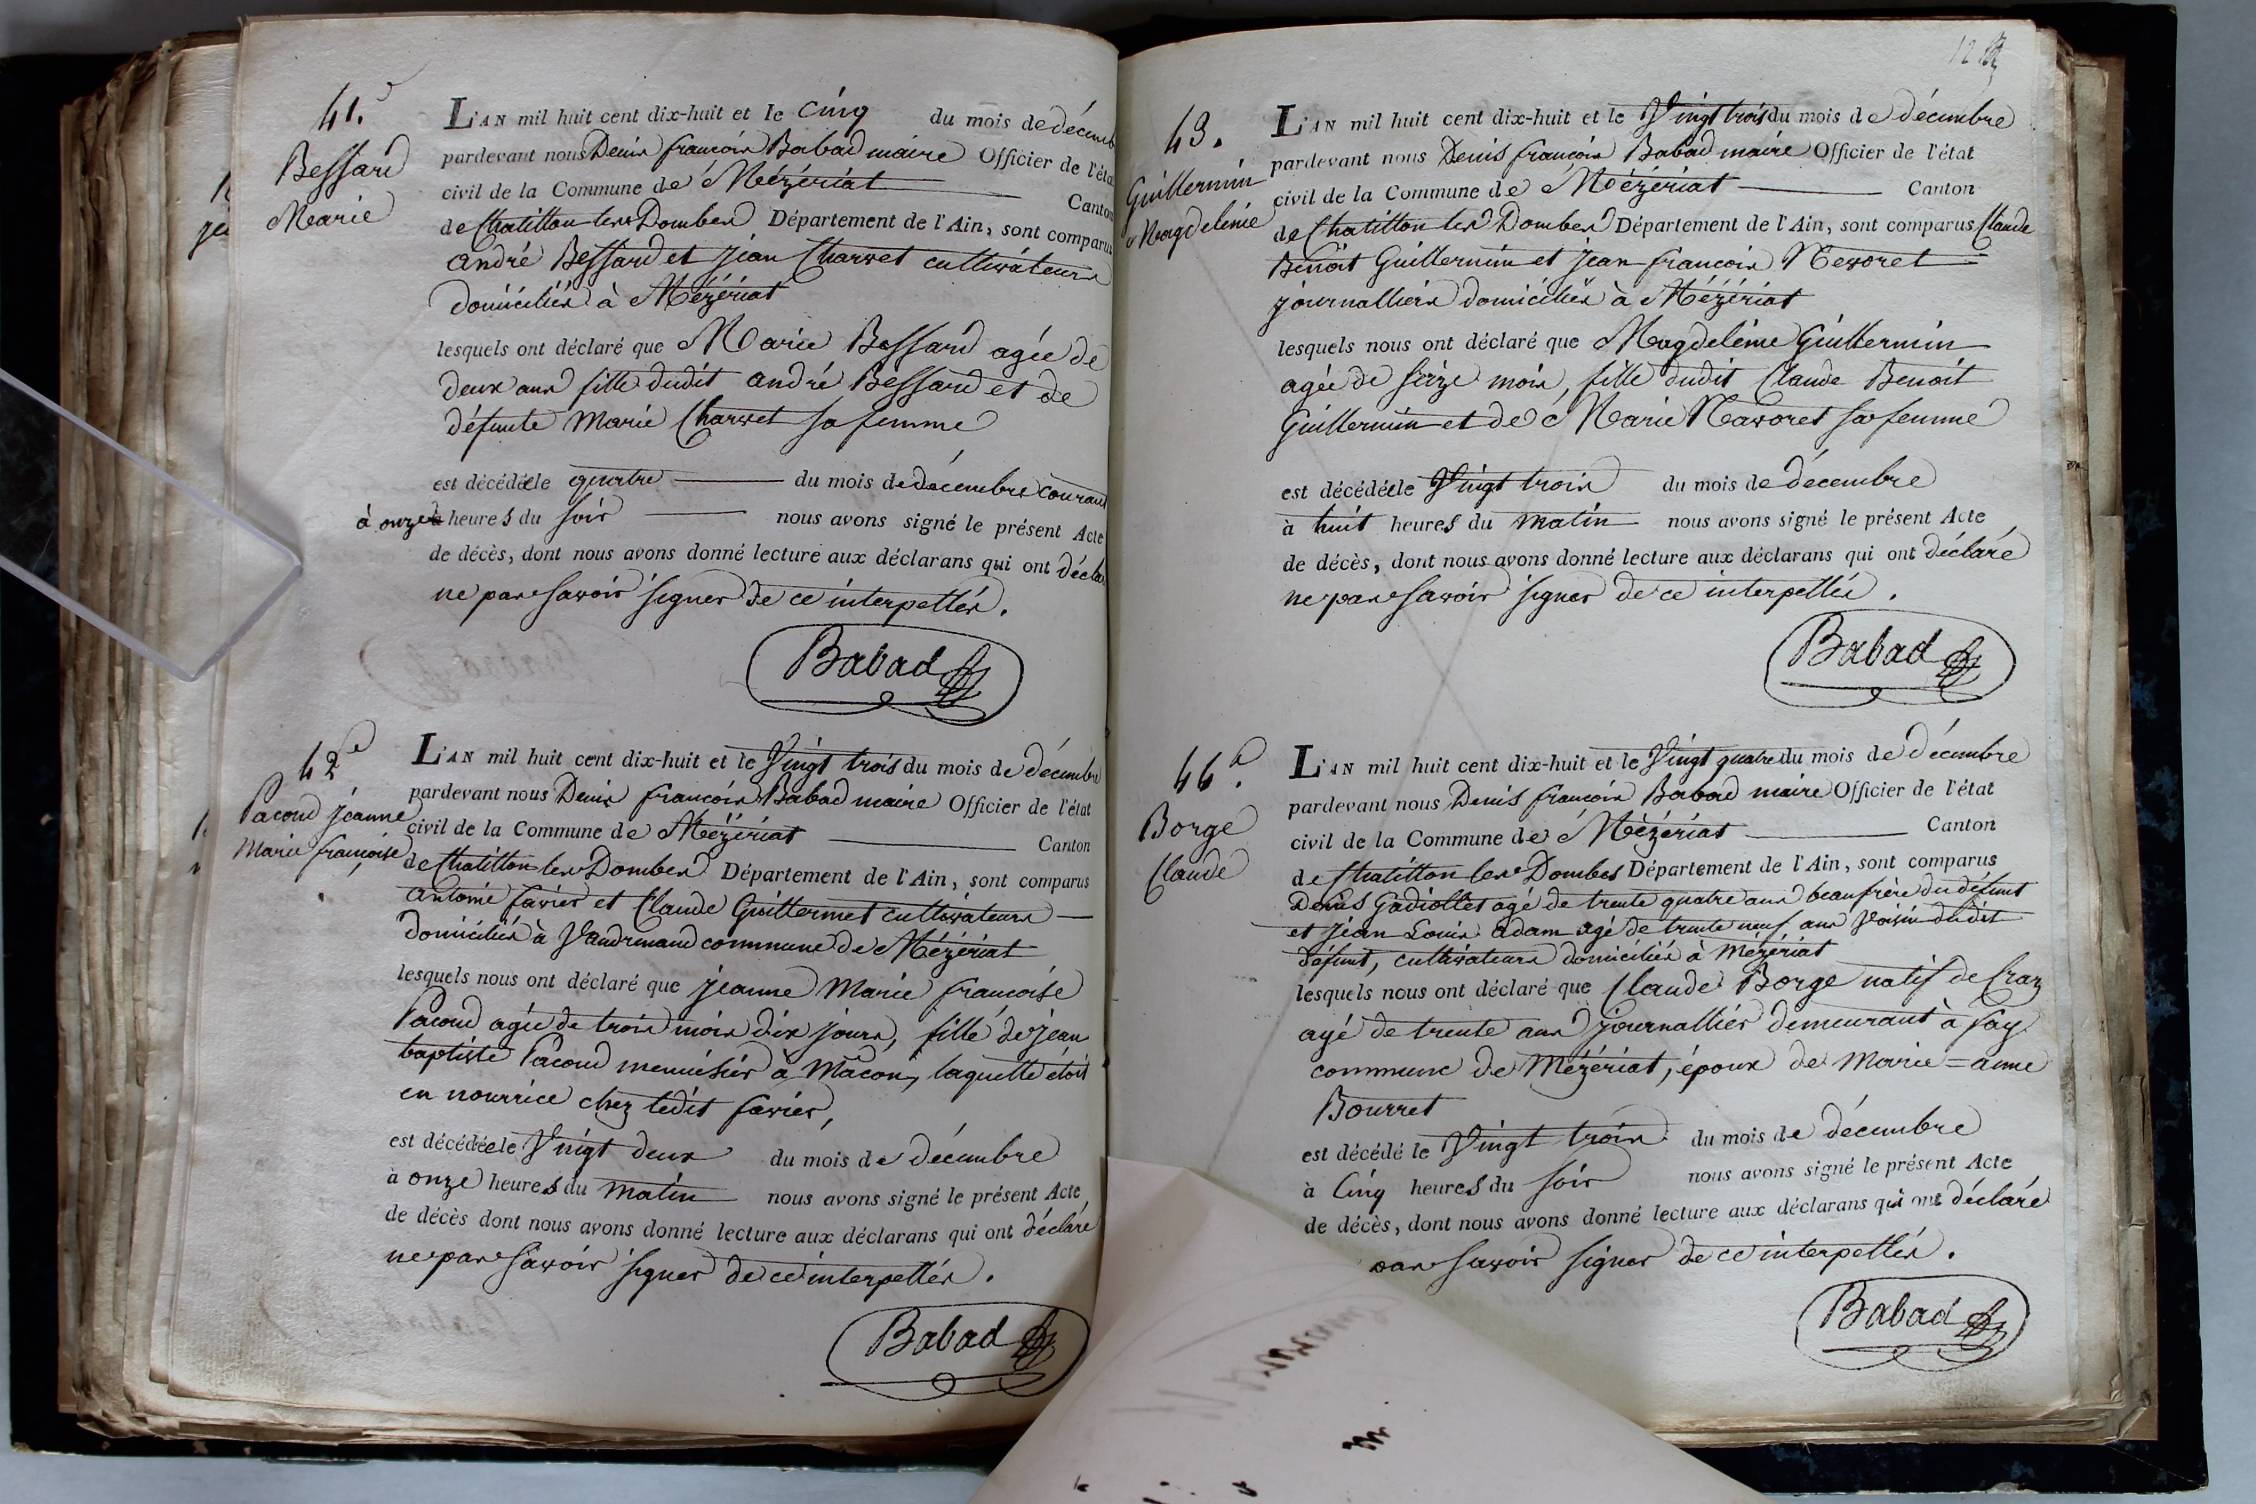 41.e
Bessard
Marie
L'AN mil huit cent dix-huit et le cinq du mois de décemb
pardevant nous Denis françois Babad maire Officier de l'éta
civil de la Commune de Mézériat Canton
de Chatillon les Dombes Département de l'Ain, sont comparus
andré Bessard et jean Charvet cultivateurs
domiciliés à Mézériat
lesquels ont déclaré que Marie Bessard agée de
deux ans fille dudit andré Bessard et de
défunte Marie Charvet sa femme
est décédée le quatre du mois de décembre courant
à onze heures du soir nous avons signé le présent Acte
de décès, dont nous avons donné lecture aux déclarans qui ont décla
ne pas savoir signer de ce interpellés.
Babad
42e
Pacoud jeanne
Marie françoise
L'AN mil huit cent dix-huit et le Vingt trois du mois de décembre
pardevant nous Denis françois Babad maire Officier de l'état
civil de la Commune de Mézériat Canton
de Chatillon les Dombes Département de l'Ain, sont comparus
antoine favier et Claude Guillermet cultivateurs
domiciliés à Vandrenand commune de Mézériat
lesquels nous ont déclaré que jeanne Marie françoise
Pacoud agée de trois mois dix jours, fille de jean
baptiste Pacoud menuisier à Mâcon, laquelle étoit
en nourrice chez ledit favier,
est décédée le Vingt deux du mois de décembre
à onze heures du matin nous avons signé le présent Acte
de décès dont nous avons donné lecture aux déclarans qui ont déclaré
ne pas savoir signer de ce interpellés.
Babad
12
43.
Guillermin
Magdeleine
L'AN mil huit cent dix-huit et le Vingt trois du mois de décembre
pardevant nous Denis françois Babad maire Officier de l'état
civil de la Commune de Mézériat Canton
de Chatillon les Dombes Département de l'Ain, sont comparus Claude
Benoit Guillermin et jean françois Nevoret
journalliers domiciliés à Mézériat
lesquels nous ont déclaré que Magdeleine Guillermin
agée de seize mois, fille dudit Claude Benoit
Guillermin et de Marie Navoret sa femme
est décédée le Vingt trois du mois de décembre
à huit heures du matin nous avons signé le présent Acte
de décès, dont nous avons donné lecture aux déclarans qui ont déclaré
ne pas savoir signer de ce interpellés.
Babad
44e.
Borge
Claude
L'AN mil huit cent dix-huit et le Vingt quatre du mois de décembre
pardevant nous Denis françois Babad maire Officier de l'état
civil de la Commune de Mézériat Canton
de Chatillon les Dombes Département de l'Ain, sont comparus
Denis Gadiollet agé de trente quatre ans beaufrère du défunt
et jean Louis adam agé de trente neuf ans Voisin dudit
défunt, cultivateurs domiciliés à Mézériat
lesquels nous ont déclaré que Claude Borge natif de Craz
agé de trente ans journallier demeurant à fay
commune de Mézériat, époux de Marie=anne
Bourret
est décédé le Vingt trois du mois de décembre
à Cinq heures du soir nous avons signé le présent Acte
de décès, dont nous avons donné lecture aux déclarans qui ont déclaré
pas savoir signer de ce interpellés.
Babad